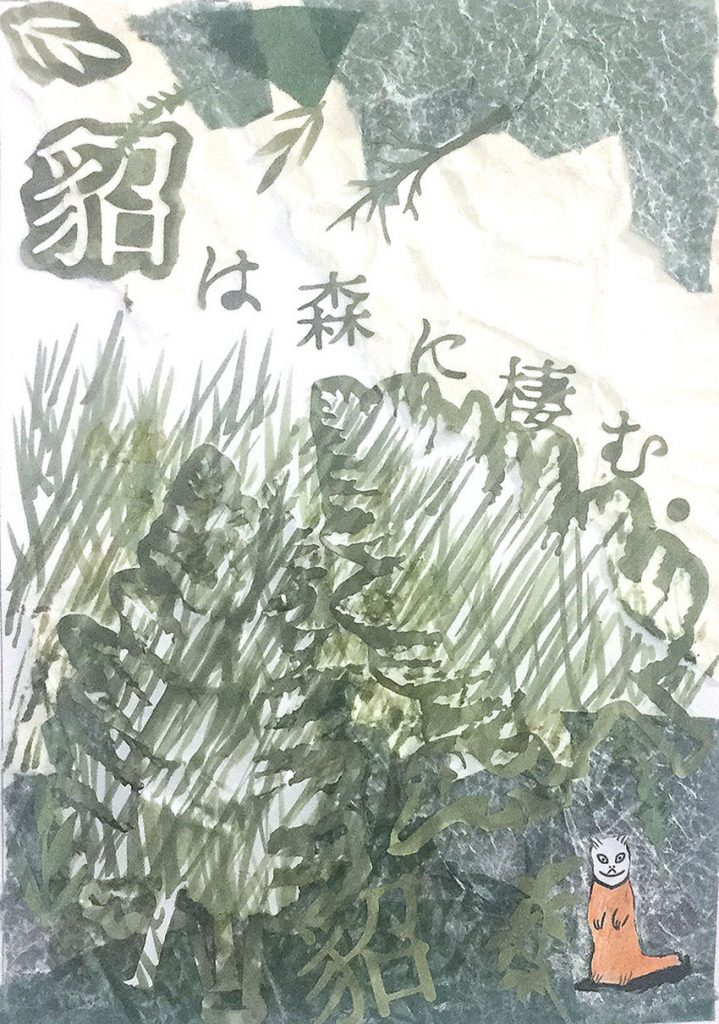 貂は森に棲む・
貂